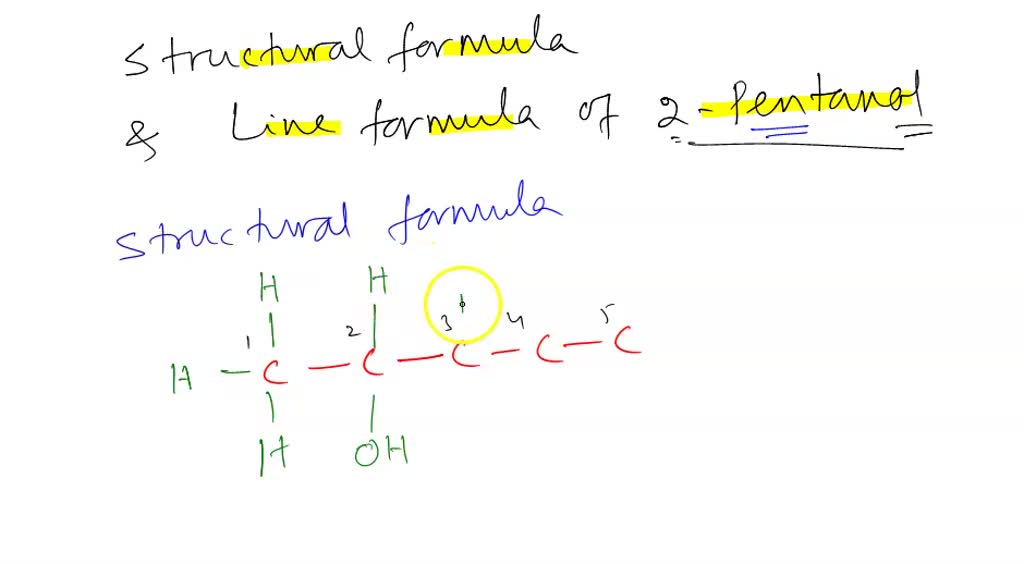 structural formula
& Line formula of 2-Pentanol
structural formula
H H
1 2 3 4 5
H - C - C - C - C - C
H OH